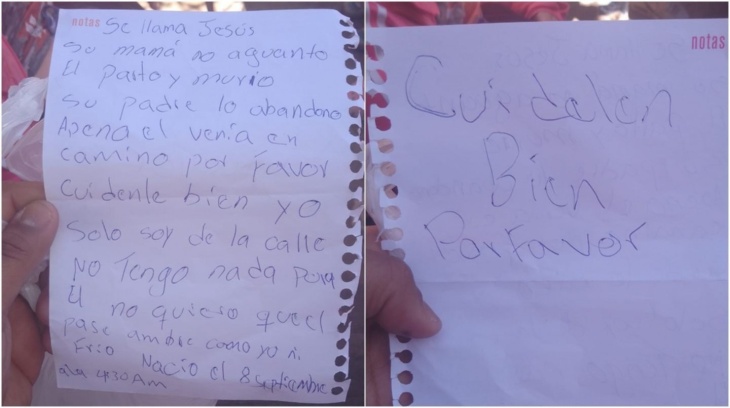 notas
Se llama Jesús
su mamá no aguanto
El parto y murio
su padre lo abandono
Apena el venia en
camino por Favor
cuidenle bien yo
Solo soy de la calle
No Tengo nada para
El no quiero que el
pase ambre como yo ni
Frio Nacio el 8 septiembre
ala 4:30 Am
notas
Cuidelen
Bien
Por Favor